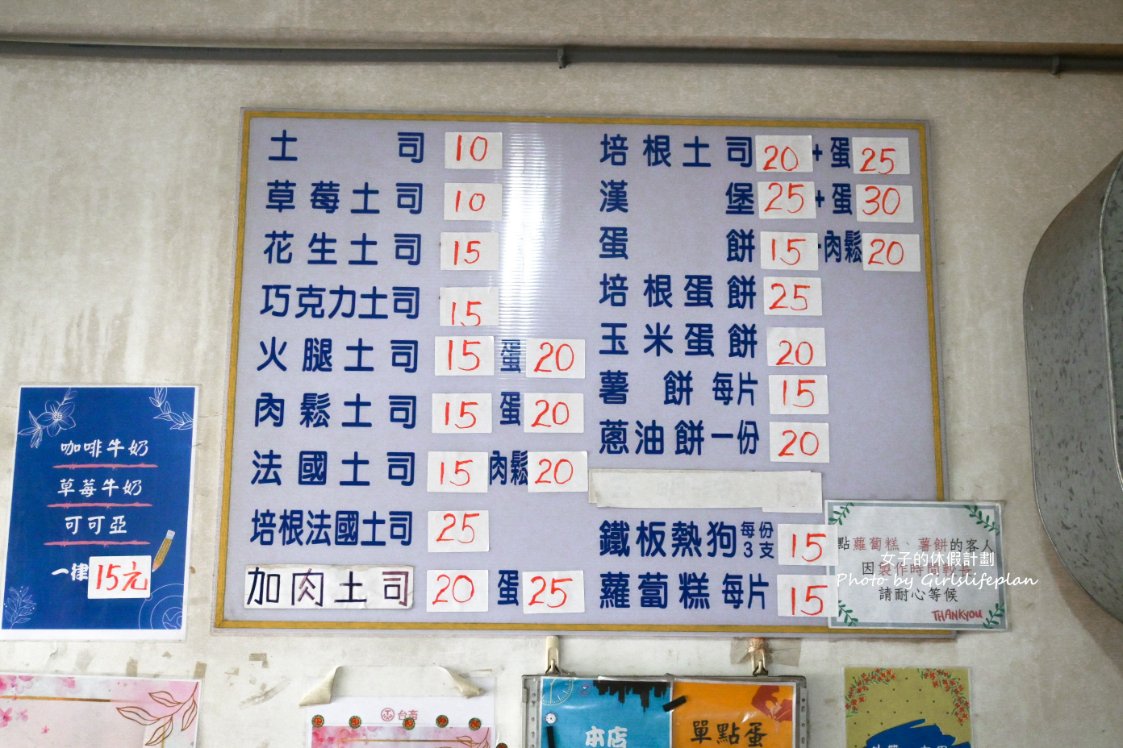 土司 10
草莓土司 10
花生土司 15
巧克力土司 15
火腿土司 15 蛋 20
肉鬆土司 15 蛋 20
法國土司 15 肉鬆 20
培根法國土司 25
加肉土司 20 蛋 25
培根土司 20 +蛋 25
漢堡 25 +蛋 30
蛋餅 15 +肉鬆 20
培根蛋餅 25
玉米蛋餅 20
薯餅 每片 15
蔥油餅一份 20
鐵板熱狗 每份3支 15
蘿蔔糕 每片 15
咖啡牛奶
草莓牛奶
可可亞
一律15元
點蘿蔔糕、薯餅的客人
因製作時間較長
請耐心等候
THANKYOU
女子的休假計劃
Photo by Girlslifeplan
台斉
本店
單點蛋